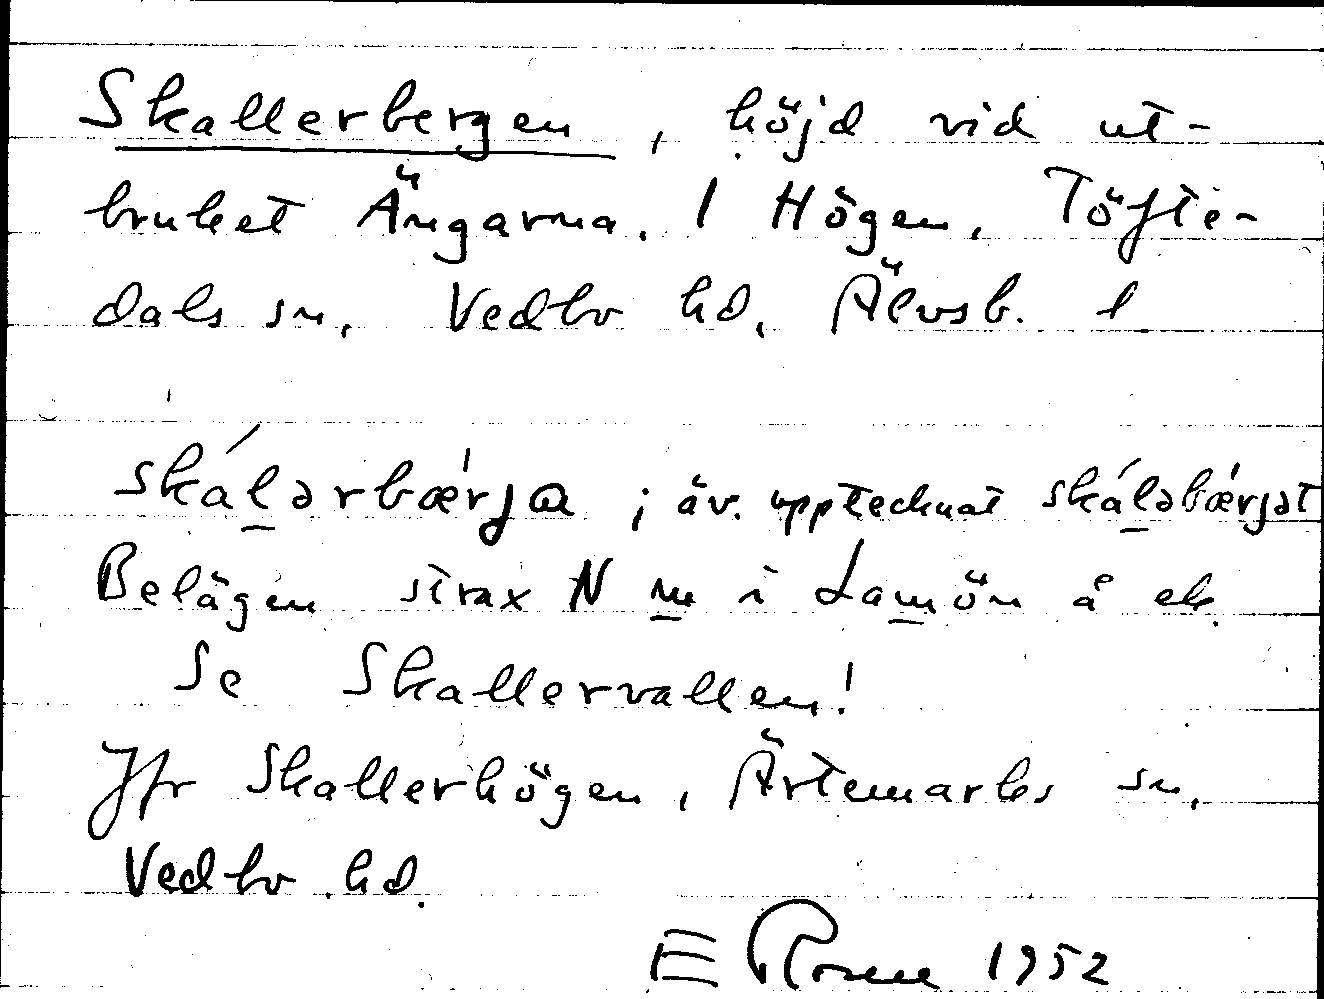 Skallerbergen, höjd vid ut-
bruket Ängarna. 1 Högen, Töfte-
dals sn, Vedbo hd, Älvsb. l
skálərbæ̀rja; äv. upptecknat skáləbærjət
Belägen strax N m i Lamön å ek.
Se Skallervallen!
Jfr Skallerhögen, Ärtemarks sn,
Vedbo hd.
E 1952